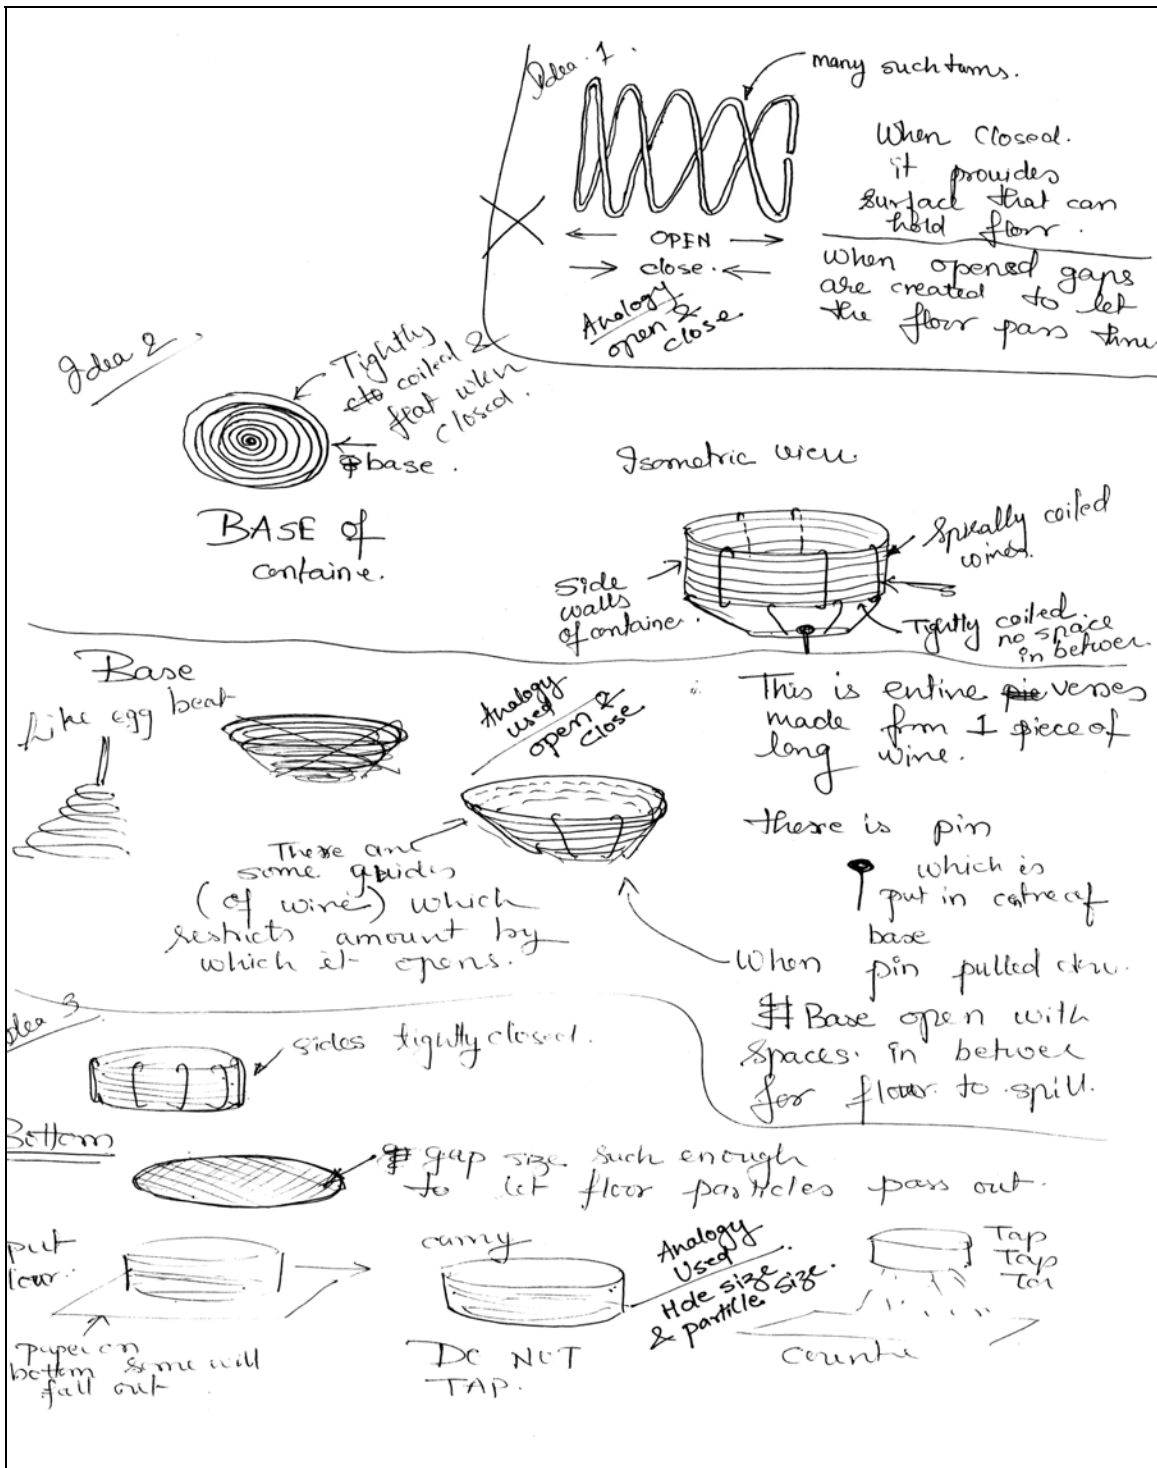 Idea 1.
many such turns.
When Closed.
it provides
surface that can
hold floor.
OPEN
close.
Analogy
open &
close
when opened gaps
are created to let
the floor pass thru
Idea 2
Tightly
coiled &
flat when
closed.
base.
BASE of
containe.
Isometric view
Spirally coiled
wires.
Side
walls
of container.
Tightly coiled.
no space
in betwen
Base
Like egg beat
Analogy
used
open &
Close
There are
some guides
(of wire) which
restricts amount by
which it opens.
This is entire verses
made from 1 piece of
long wire.
there is pin
which is
put in centre of
base
When pin pulled
Base open with
spaces. in betwee
for flour to spill.
Idea 3
sides tightly closed.
Bottom
gap size such enough
to let floor particles pass out.
put
paper on
bottom some will
fall out
carry
DO NOT
TAP.
Analogy
Used
Hole size
& particle size.
Tap
Tap
Tap